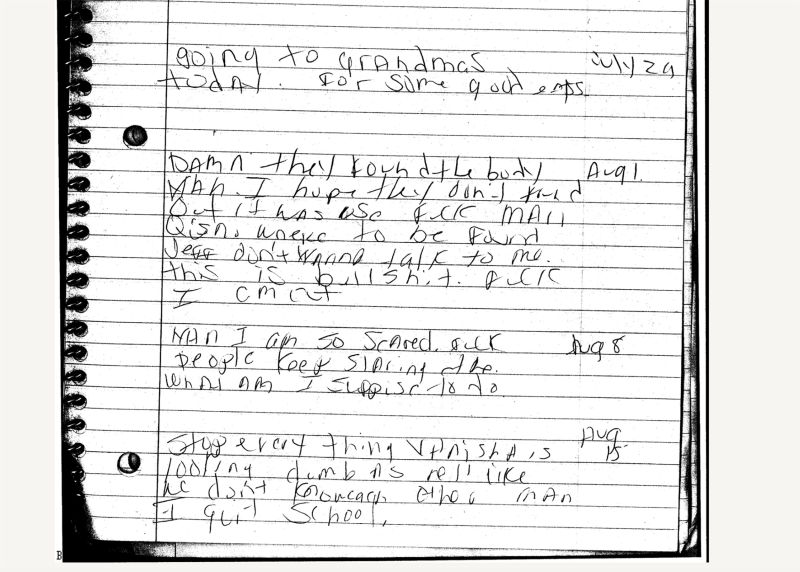 going to grandmas July 29
today. For some good emps.
DAMN they found the body Aug 1
MAN. I hope they don't find
Out it was use fuck MAN
Qish, where to be found
Jeff don't wanna talk to me.
this is bullshit. fuck
I
MAN I am so scared. fuck Aug 8
people keep staring
What am I suppise to do
Stop every thing is Aug
looking dumb as hell like 15
we don't know each other MAN
I quit School.
B